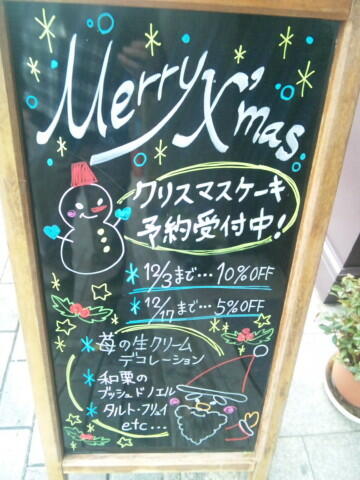 Merry
X'mas
クリスマスケーキ
予約受付中!
*12/3まで…10%OFF
*12/17まで…5%OFF
*苺の生クリーム
デコレーション
*和栗の
ブッシュドノエル
*タルト・フリュイ
etc...